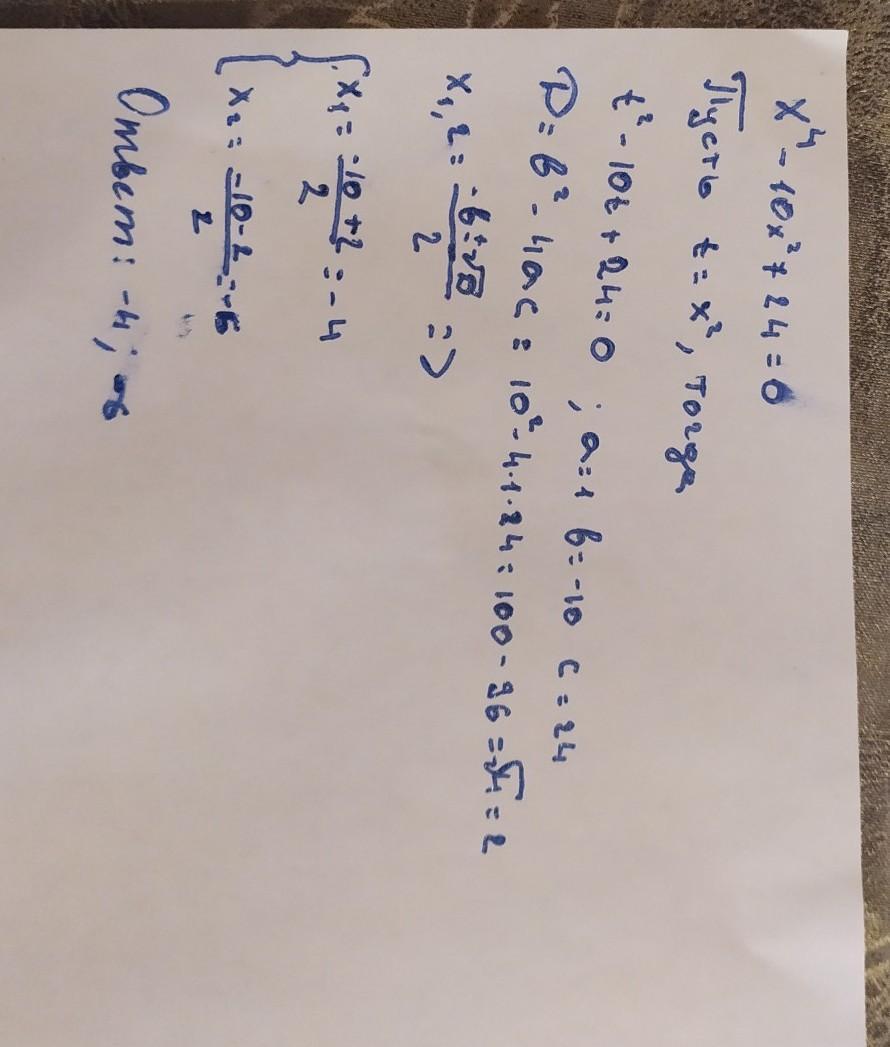 x⁴ - 10x² + 24 = 0
Пусть t = x², тогда
t² - 10t + 24 = 0 ; a = 1 b = -10 c = 24
D = b² - 4ac = 10² - 4·1·24 = 100 - 96 = √4 = 2
x₁,₂ = (-b ± √D)/2 =>
{ x₁ = (-10 + 2)/2 = -4
{ x₂ = (-10 - 2)/2 = -6
Ответ: -4; -6